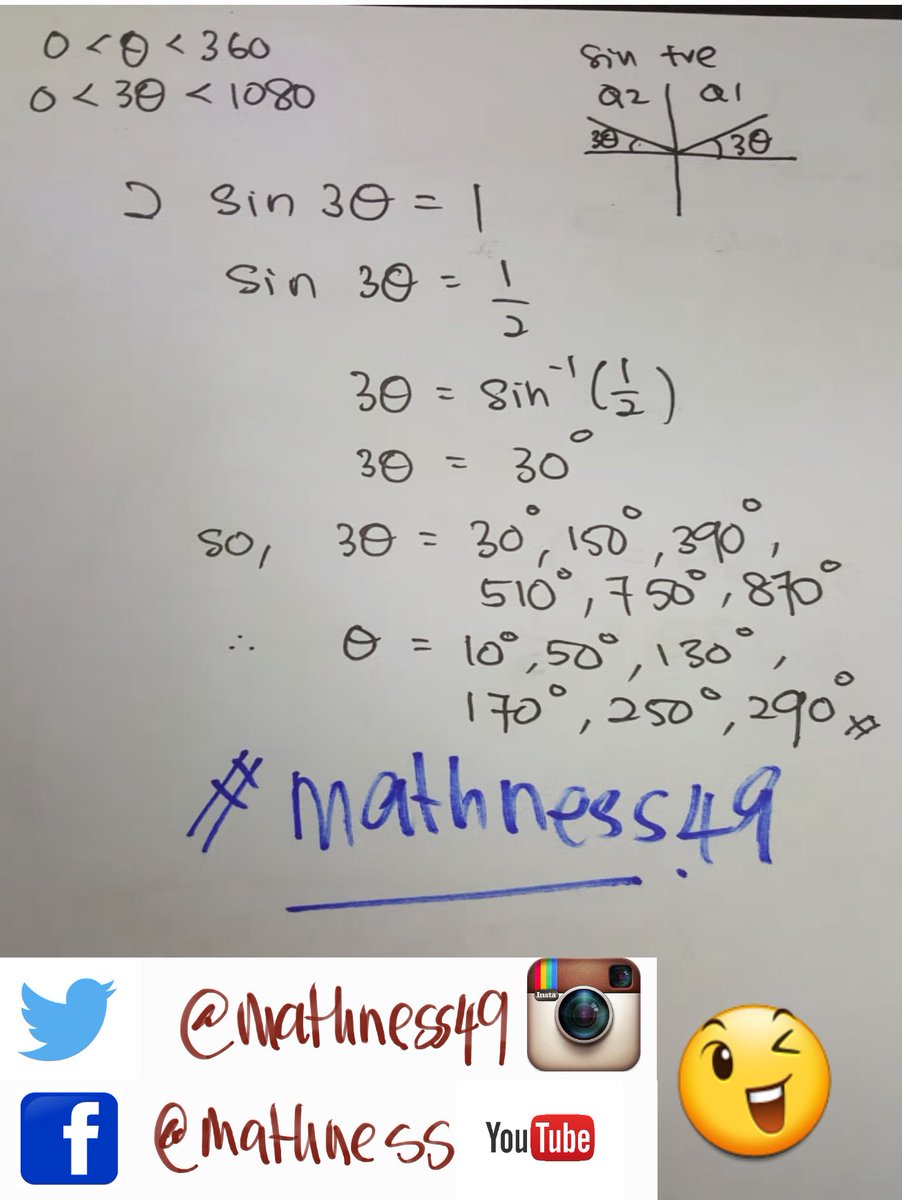 0 < θ < 360
0 < 3θ < 1080
sin +ve
Q2 Q1
3θ 3θ
2 sin 3θ = 1
sin 3θ = 1/2
3θ = sin⁻¹ (1/2)
3θ = 30°
so, 3θ = 30°, 150°, 390°,
510°, 750°, 870°
∴ θ = 10°, 50°, 130°,
170°, 250°, 290°
#mathness49
@mathness49
Insta
f @mathness YouTube